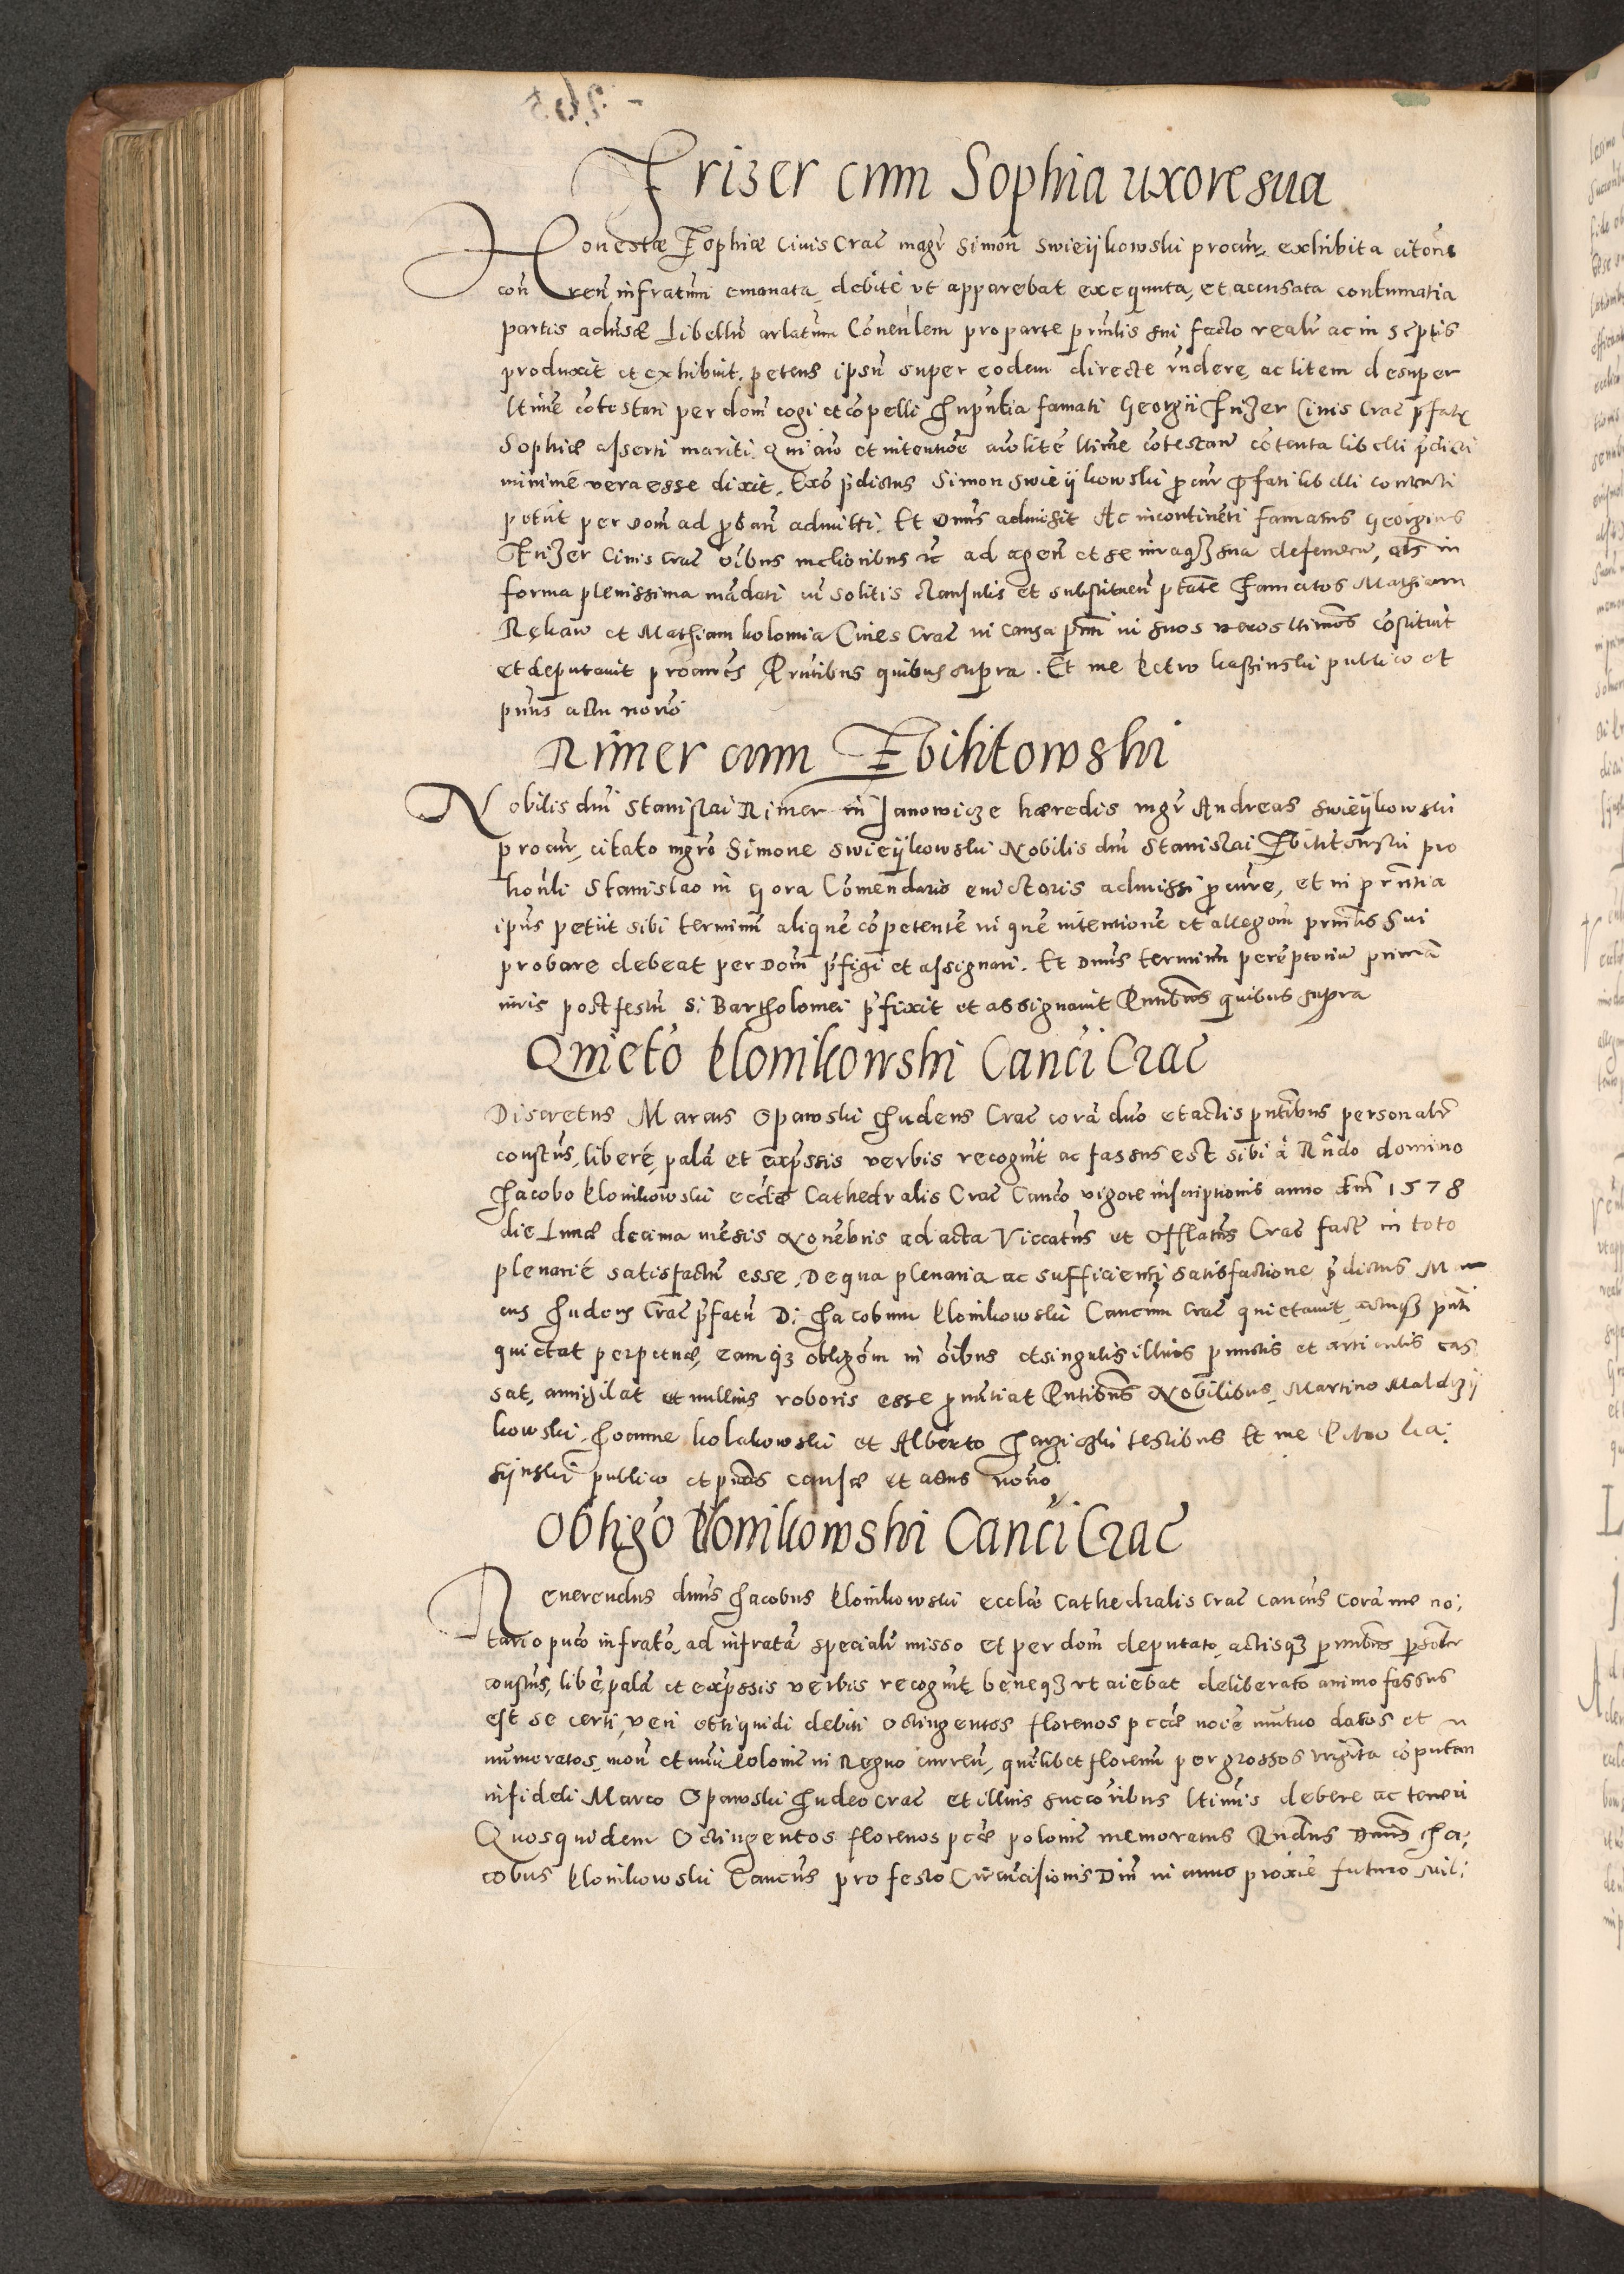 Frizer cum Sophia uxore sua
Honestæ Zophiæ Civis Crac̄ magr̄ Simon Swieijkowski procur̄, exhibita citōne
con ren̄ infratum emanata, debitè vt apparebat exequuta, et accusata contumatia
partis aduersæ Libellū arlatum Conculem pro parte prn̄lis sui facto realr̄ ac in scriptis
produxit et exhibuit, petens ipsū super eodem directe rn̄dere, ac litem desuper
ltime cōtestari per dom̄ cogi et cōpelli In pn̄tia famati Georgii Frizer Civis Crac̄ pr̄fatæ
Sophiæ asserti mariti. Qui aīo et intentiōe litē ltime cōtestan̄ cōtenta libelli pr̄dicti
minimè vera esse dixit. Ex̄o pr̄dictus Simon Swieijkowski procur̄ pr̄fati libelli contenti
petiit per dom̄ ad proban̄ admitti. Et Dn̄us admisit Ac incontinēti famatus Georgius
Frizer Civis Crac̄ oībus melioribus ac ad agen̄ et se sua defenden̄, als in
forma plenissima mādati cū solitis clausulis et substituen̄ ptate Famatos Mathiam
Rękaw et Mathiam Kolomia Cives Crac̄ in causa prn̄ti in suos veros ltimos cōstituit
et deputavit procures, Pn̄tibus quibus supra. Et me Petro Kaszinski publico et
pn̄tis actu noīo
Rimer cum Zbilitowski
Nobilis dn̄i Stanislai Rimer in Janowicze hæredis mgr̄ Andreas Swieijkowski
procur̄, citato mgrō Simone Swieijkowski Nobilis dn̄i Stanislai Zbilitowski pro
hon̄li Stanislao in Gora Cōmendario evictoris admissi procure, et in prn̄tia
ipsius petiit sibi terminū aliquē cōpetentē in quē intentionē et allegōm prn̄lis sui
probare debeat per Dom̄ pr̄figi et assignari. Et Dn̄us terminū perēptoriū primā
iuris post festū S: Bartholomei pr̄fixit et assignavit Pn̄tibus quibus supra
Quietō Klonikowski Canc̄i Crac̄
Discretus Marcus Opawski Iudeus Crac̄ corā dn̄o et actis pn̄tibus personalr̄
constūs, liberè, palā et exprssis verbis recognit ac fassus est sibi à Rn̄do domino
Iacobo Klonikowski eccliæ Cathedralis Crac̄ Canc̄o vigore inscriptionis anno dn̄i 1578
die Lunæ decima mēsis Novēbris ad acta Viccatus et Offlatus Crac̄ fact̄ in toto
plenariè satisfactū esse, De qua plenaria ac sufficienti satisfactione pr̄dictus Mar
cus Iudeus Crac̄ pr̄fatū D: Iacobum Klonikowski Canc̄um Crac̄ quietavit, actuq3 pn̄ti
quietat perpetuæ, eamq3 obligōm in oībus et singulis illius punctis et articulis cas
sat, annihilat et nullius roboris esse pronūtiat Pn̄tibus Nobilibus Martino Maldrzij
kowski, Ioanne Kolakowski et Alberto testibus Et me Petro Ka:
sijnski publico et pn̄tis causæ et actus noīo
Obligō Klonikowski Canc̄i Crac̄
Reverendus dn̄us Iacobus Klonikowski eccliæ Cathedralis Crac̄ Canc̄us Corā me no:
tario puco infratō, ad infratā specialr̄ misso et per dom̄ deputato, actisq3 prn̄tibus prsolr
constūs, liberè, palā et exprssis verbis recognit beneq3 vt aiebat deliberato animo fassus
est se certi, veri et liquidi debiti Octingentos florenos pccæ noīe mutuo datos et
numeratos, mon̄ et nūi Poloniæ in Regno curren̄, quēlibet florenū per grossos triginta cōputan
infideli Marco Opawski Iudeo Crac̄ et illius succōribus ltimis debere ac teneri
Quosquidem Octingentos florenos pccæ poloniæ memoratus Rn̄dus Dn̄us Ia:
cobus Klonikowski Canc̄us pro festo Circūcisionis Dn̄i in anno proxie futuro Mil: